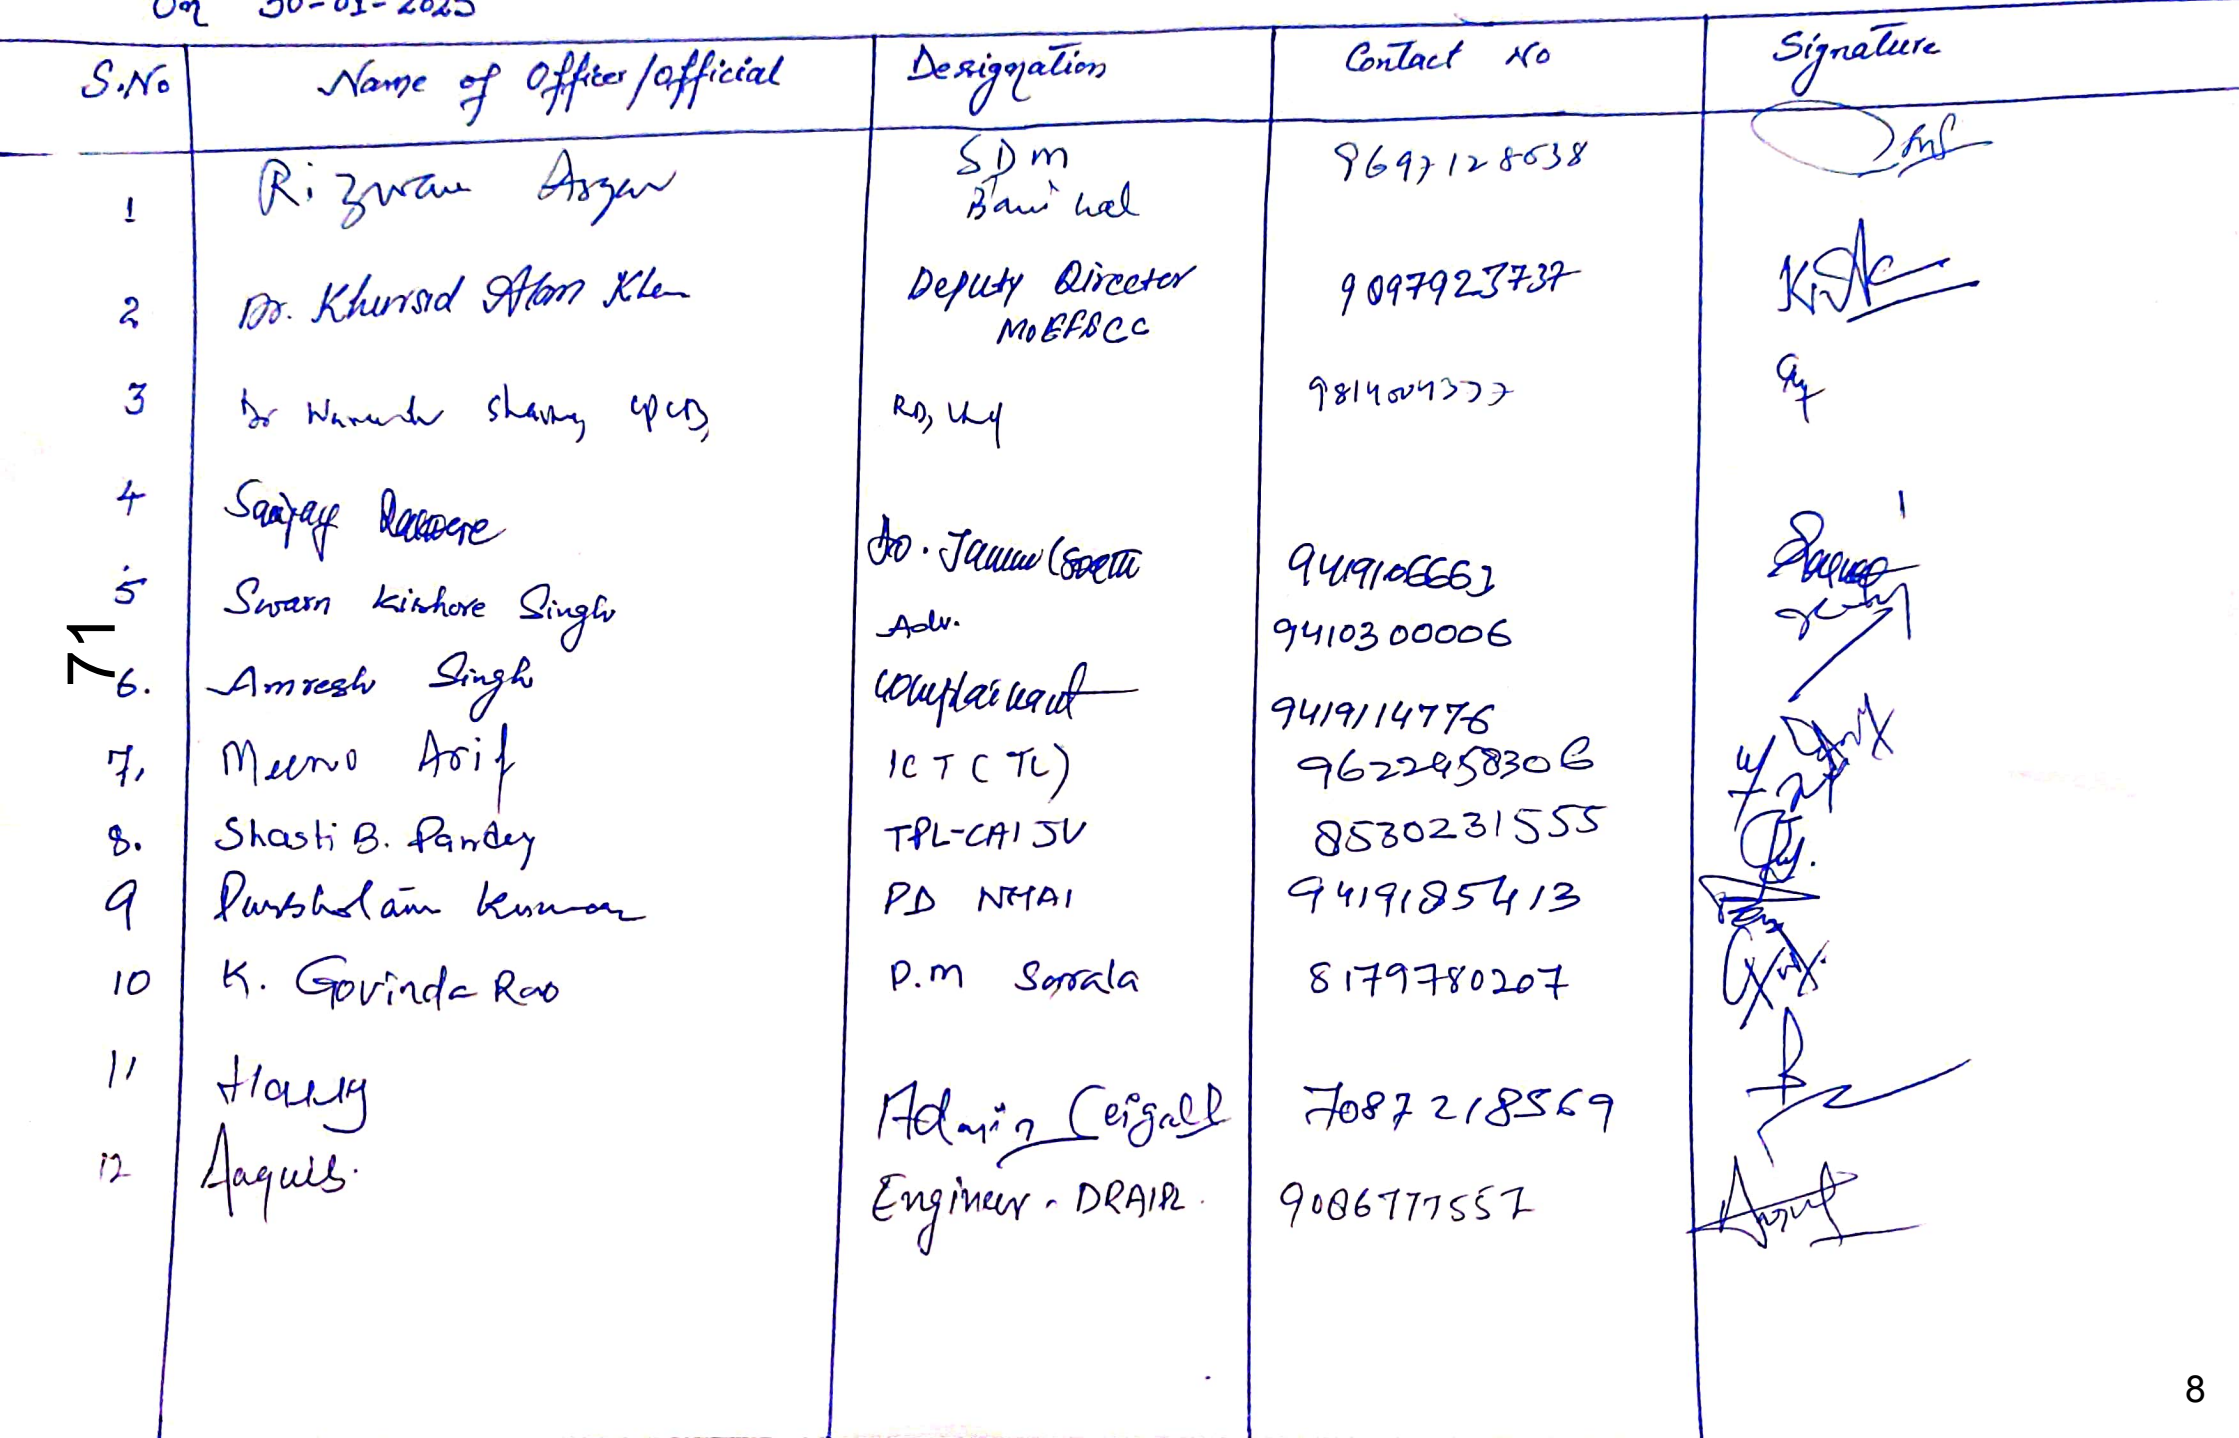 On 30-01-2025
S.No Name of Officer/official Designation Contact No Signature
1 Rizwan SDM
Banihal
2 Dr. Khursid Alam Khan Deputy Director 9097923737
MoEF&CC
3 Dr Sharma, CPCB, RD,
4 Sanjay
Do. Jammu (South 9419106661
5 Swarn Kishore Singh Adv. 9410300006
71
6. Amresh Singh Complainant 9419114776
7. Arif ICT (TL)
8. Shasti B. Pandey TPL-CAI JV 8530231555
9 Kumar PD NHAI 9419185413
10 K. Govinda Rao P.M Sarala 8179780207
11 Harry Admin Ceigall 7087218569
12 Aaquib. Engineer - DRAIPL. 9086777557
8